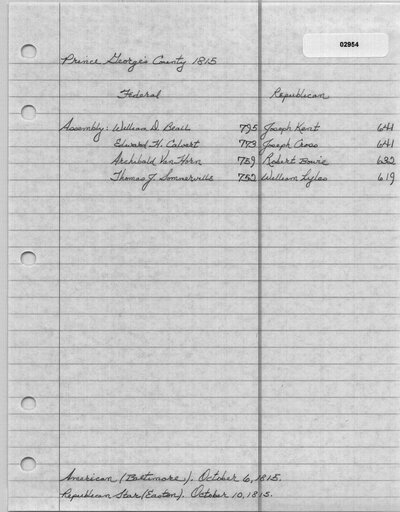 02954
Prince George's County 1815
Federal Republican
Assembly: William D. Beall 795 Joseph Kent 641
Edward H. Calvert 773 Joseph Cross 641
Archibald Van Horn 759 Robert Bowie 632
Thomas J. Sommerville 752 William Lyles 619
American (Baltimore). October 6, 1815.
Republican Star (Easton). October 10, 1815.